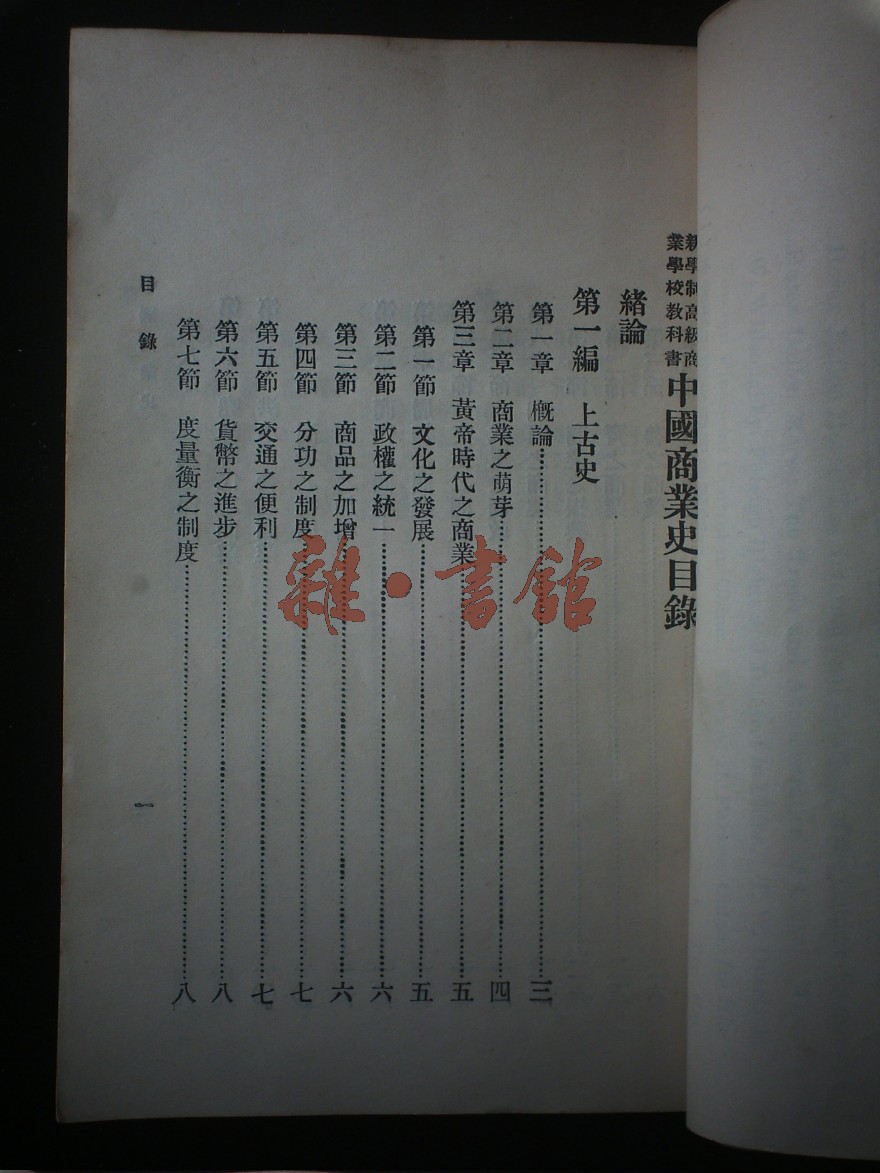 新學制高級商業學校教科書 中國商業史目錄
緒論
第一編 上古史
第一章 概論……三
第二章 商業之萌芽……四
第三章 黃帝時代之商業……五
第一節 文化之發展……五
第二節 政權之統一……六
第三節 商品之加增……六
第四節 分功之制度……七
第五節 交通之便利……七
第六節 貨幣之進步……八
第七節 度量衡之制度……八
目錄 一
雜·書館